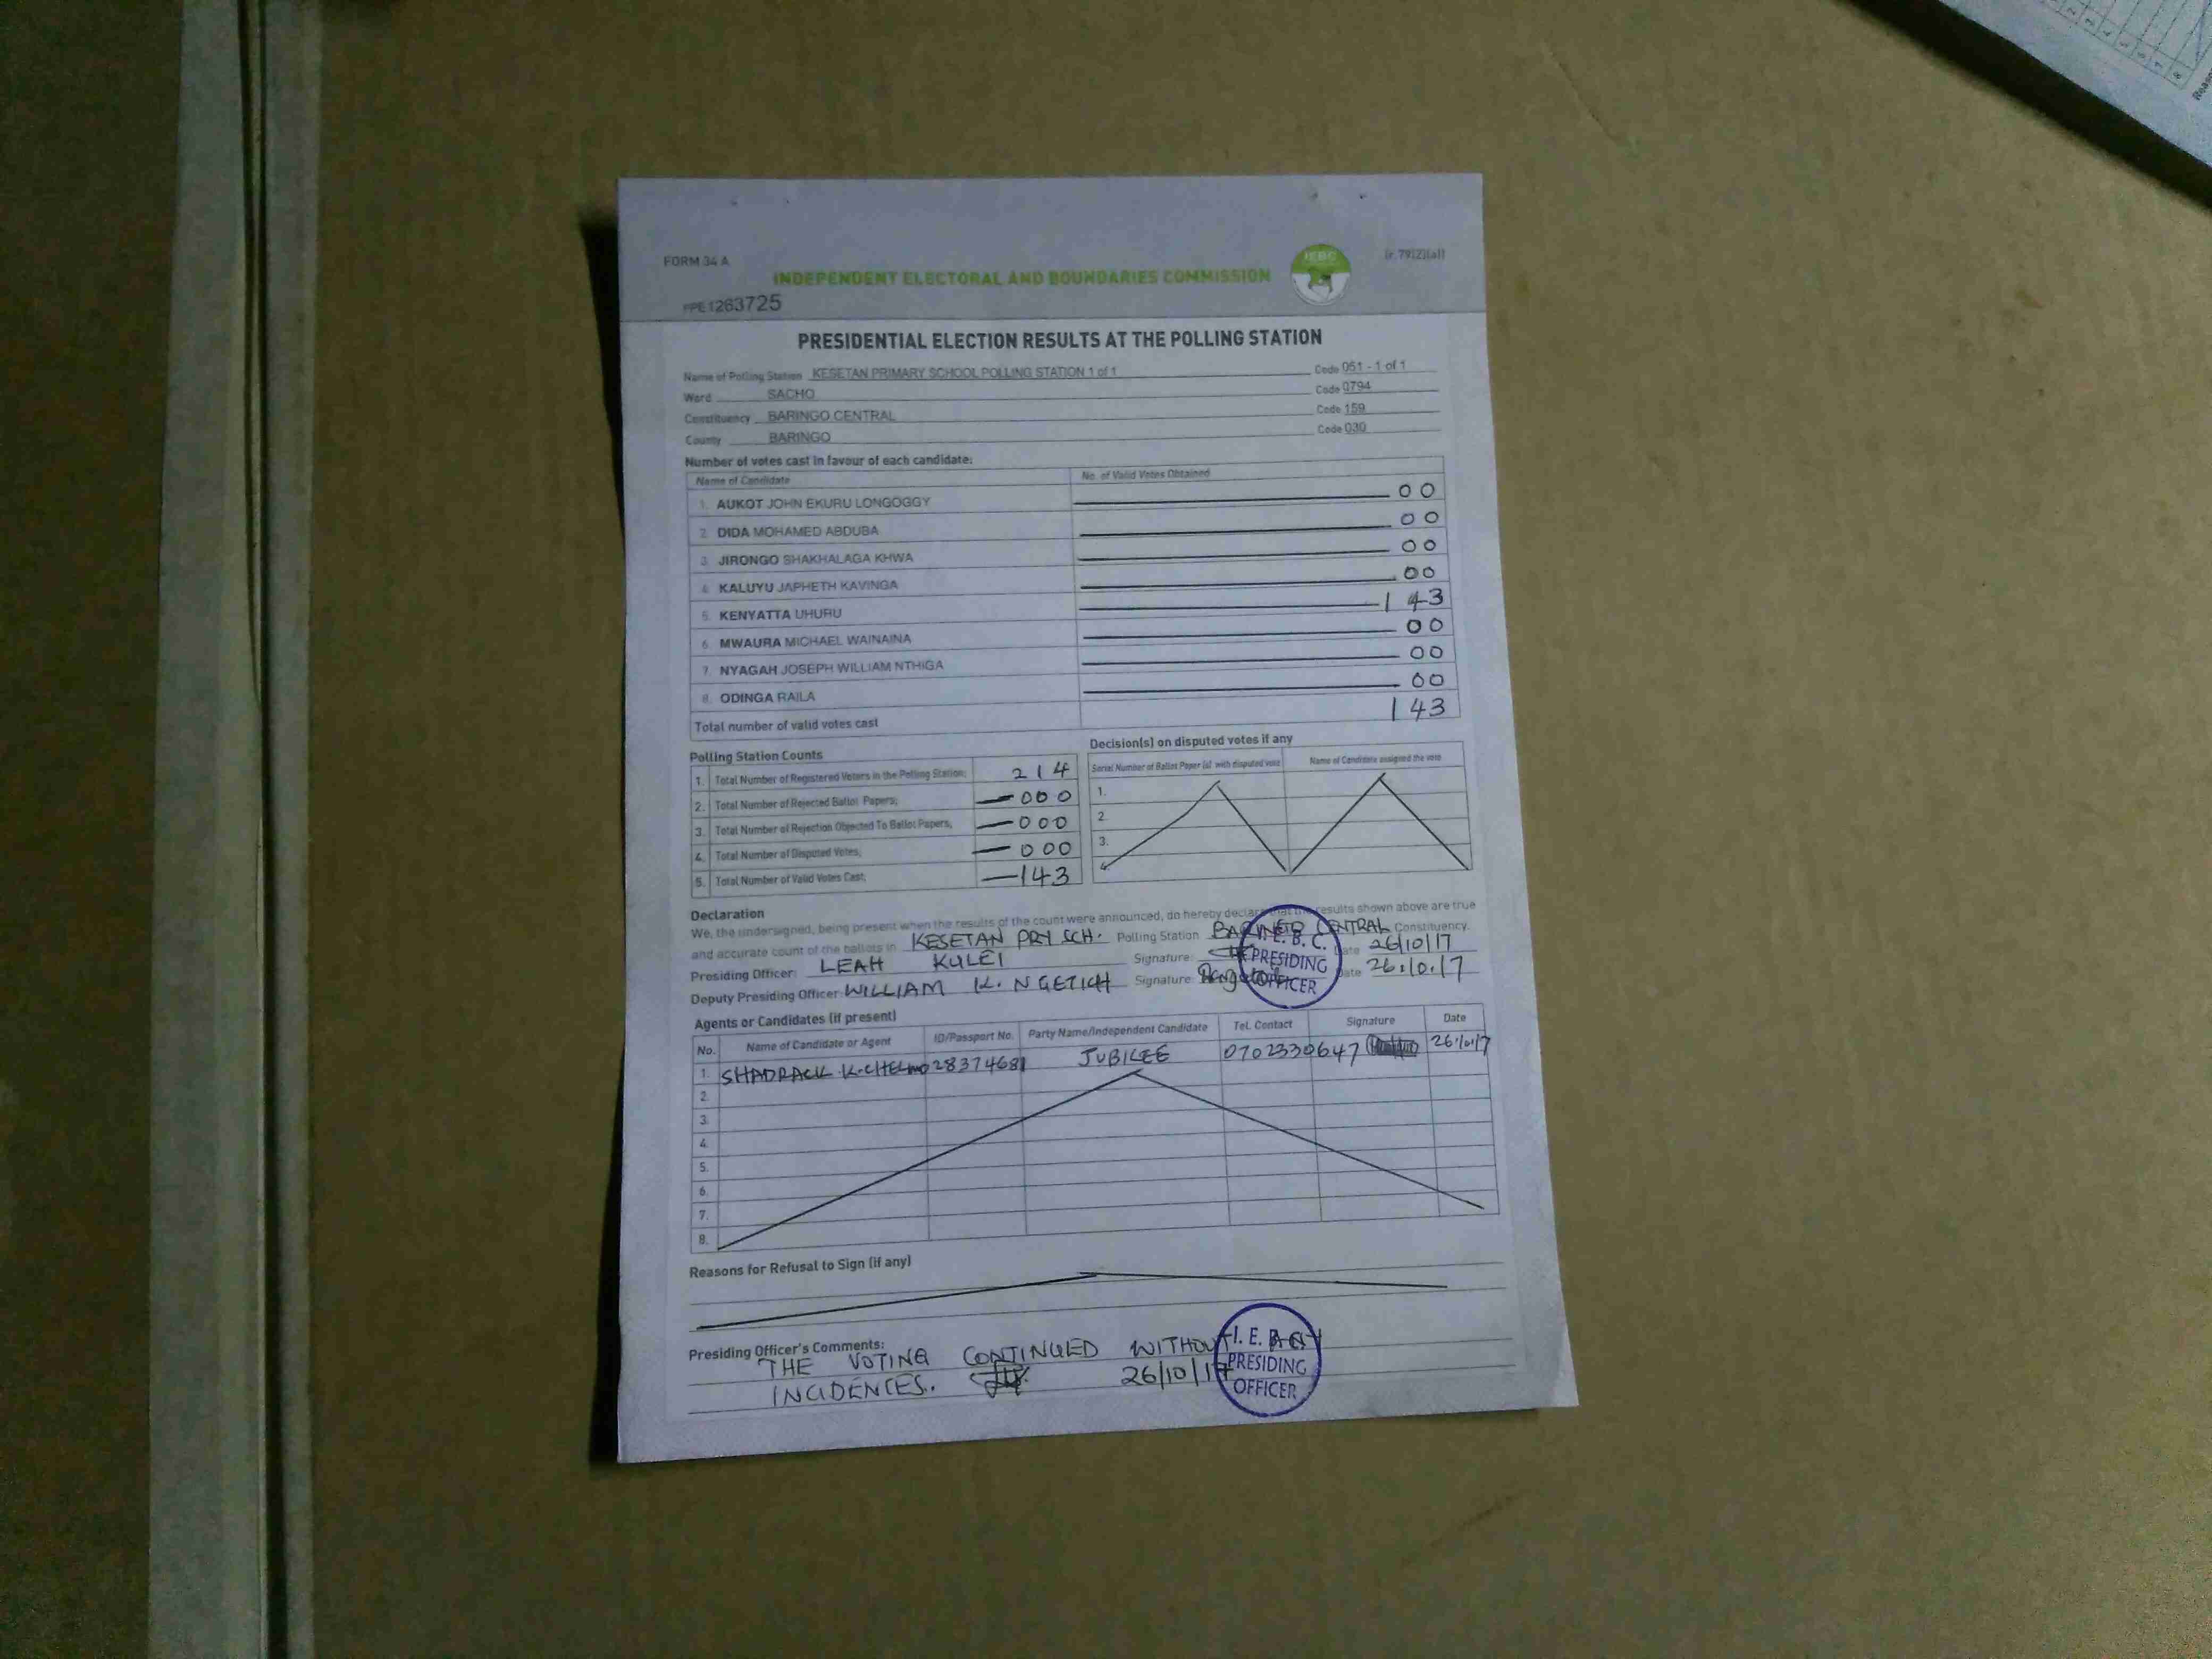 FORM 34 A
(r.79(2)(a))
IEBC
INDEPENDENT ELECTORAL AND BOUNDARIES COMMISSION
PPE1263725
PRESIDENTIAL ELECTION RESULTS AT THE POLLING STATION
Name of Polling Station KESETAN PRIMARY SCHOOL POLLING STATION 1 of 1 Code 051 - 1 of 1
Ward SACHO Code 0794
Constituency BARINGO CENTRAL Code 159
County BARINGO Code 030
Number of votes cast in favour of each candidate:
Name of Candidate No. of Valid Votes Obtained
1. AUKOT JOHN EKURU LONGOGGY 00
2. DIDA MOHAMED ABDUBA 00
3. JIRONGO SHAKHALAGA KHWA 00
4. KALUYU JAPHETH KAVINGA 00
5. KENYATTA UHURU 143
6. MWAURA MICHAEL WAINAINA 00
7. NYAGAH JOSEPH WILLIAM NTHIGA 00
8. ODINGA RAILA 00
Total number of valid votes cast 143
Polling Station Counts
1. Total Number of Registered Voters in the Polling Station; 214
2. Total Number of Rejected Ballot Papers; 000
3. Total Number of Rejection Objected To Ballot Papers; 000
4. Total Number of Disputed Votes; 000
5. Total Number of Valid Votes Cast; 143
Decision(s) on disputed votes if any
Serial Number of Ballot Paper (s) with disputed vote Name of Candidate assigned the vote
1.
2.
3.
4.
Declaration
We, the undersigned, being present when the results of the count were announced, do hereby declare that the results shown above are true
and accurate count of the ballots in KESETAN PRY SCH. Polling Station BARINGO CENTRAL Constituency.
Presiding Officer: LEAH KULEI Signature: Date 26/10/17
Deputy Presiding Officer WILLIAM K. NGETICH Signature: Date 26.10.17
I. E. B. C.
PRESIDING
OFFICER
Agents or Candidates (if present)
No. Name of Candidate or Agent ID/Passport No. Party Name/Independent Candidate Tel. Contact Signature Date
1. SHADRACK K. 28374681 JUBILEE 0702330647 26.10.17
2.
3.
4.
5.
6.
7.
8.
Reasons for Refusal to Sign (if any)
Presiding Officer's Comments:
THE VOTING CONTINUED WITHOUT
INCIDENCES. 26/10/17
I. E. B. C.
PRESIDING
OFFICER